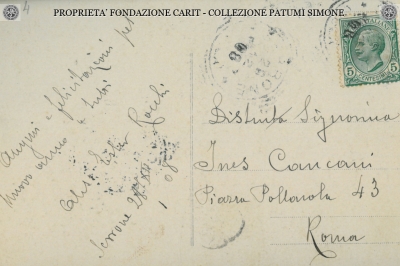 PROPRIETA' FONDAZIONE CARIT - COLLEZIONE PATUMI SIMONE
4
Auguri e felicitazioni pel
nuovo anno a tutti
Rocchi
08
5
Distinta Signorina
Ines Cancani
Piazza Pollarola 43
Roma